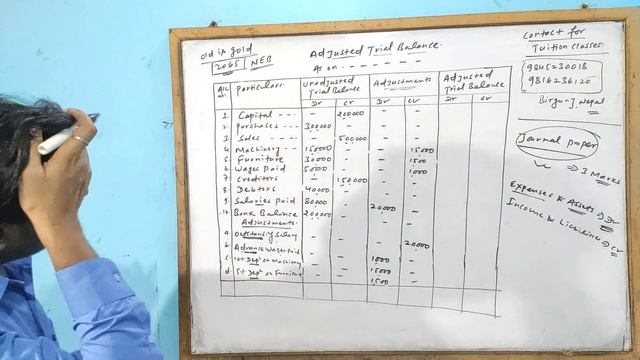 Old is gold
2065 NEB
Adjusted Trial Balance.
As on - - - - - -
Particulars Unadjusted Trial Balance Adjustments Adjusted Trial Balance
Dr cr Dr cr Dr cr
1. Capital - - - - 200000
2. Purchases - - - 300000 -
3. Sales - - - - - 500000 - -
4. Machinery - - - 150000 - - 15000
5. Furniture 30000 - - 1500
6. Wages Paid 5000 - - 1000
7. Creditors - 150000 - -
8. Debtors 40000 - - -
9. Salaries Paid 80000 - 20000 -
10. Bank Balance 200000 - - -
Adjustments.
a. Outstanding Salary - - - 20000
b. Advance Wages Paid - - 1000 -
c. 10% Depn on Machinery - - 15000 -
d. 5% Depn on Furniture - - 1500 -
Contact for
Tuition classes
9845230018
9816236120
Birgunj, Nepal
Journal paper
3 Marks
Expenses & Assets → Dr
Income & Liabilities → Cr